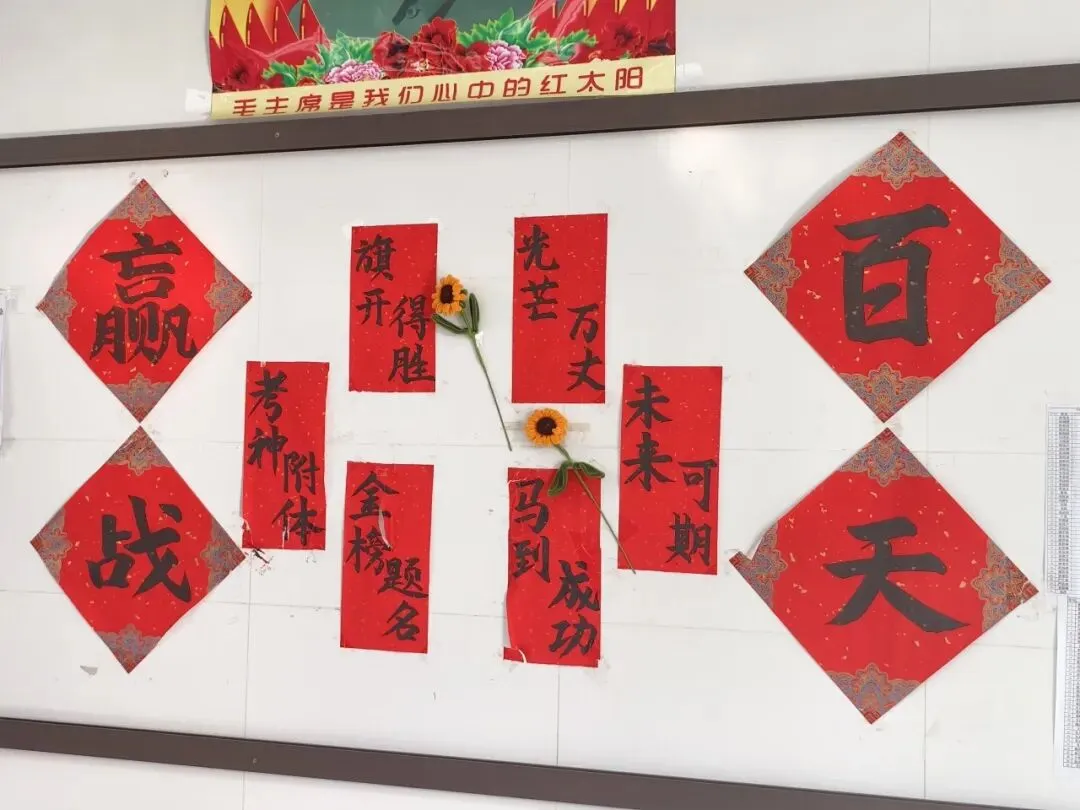 毛主席是我们心中的红太阳
赢战
百天
旗开得胜
光芒万丈
考神附体
未来可期
金榜题名
马到成功